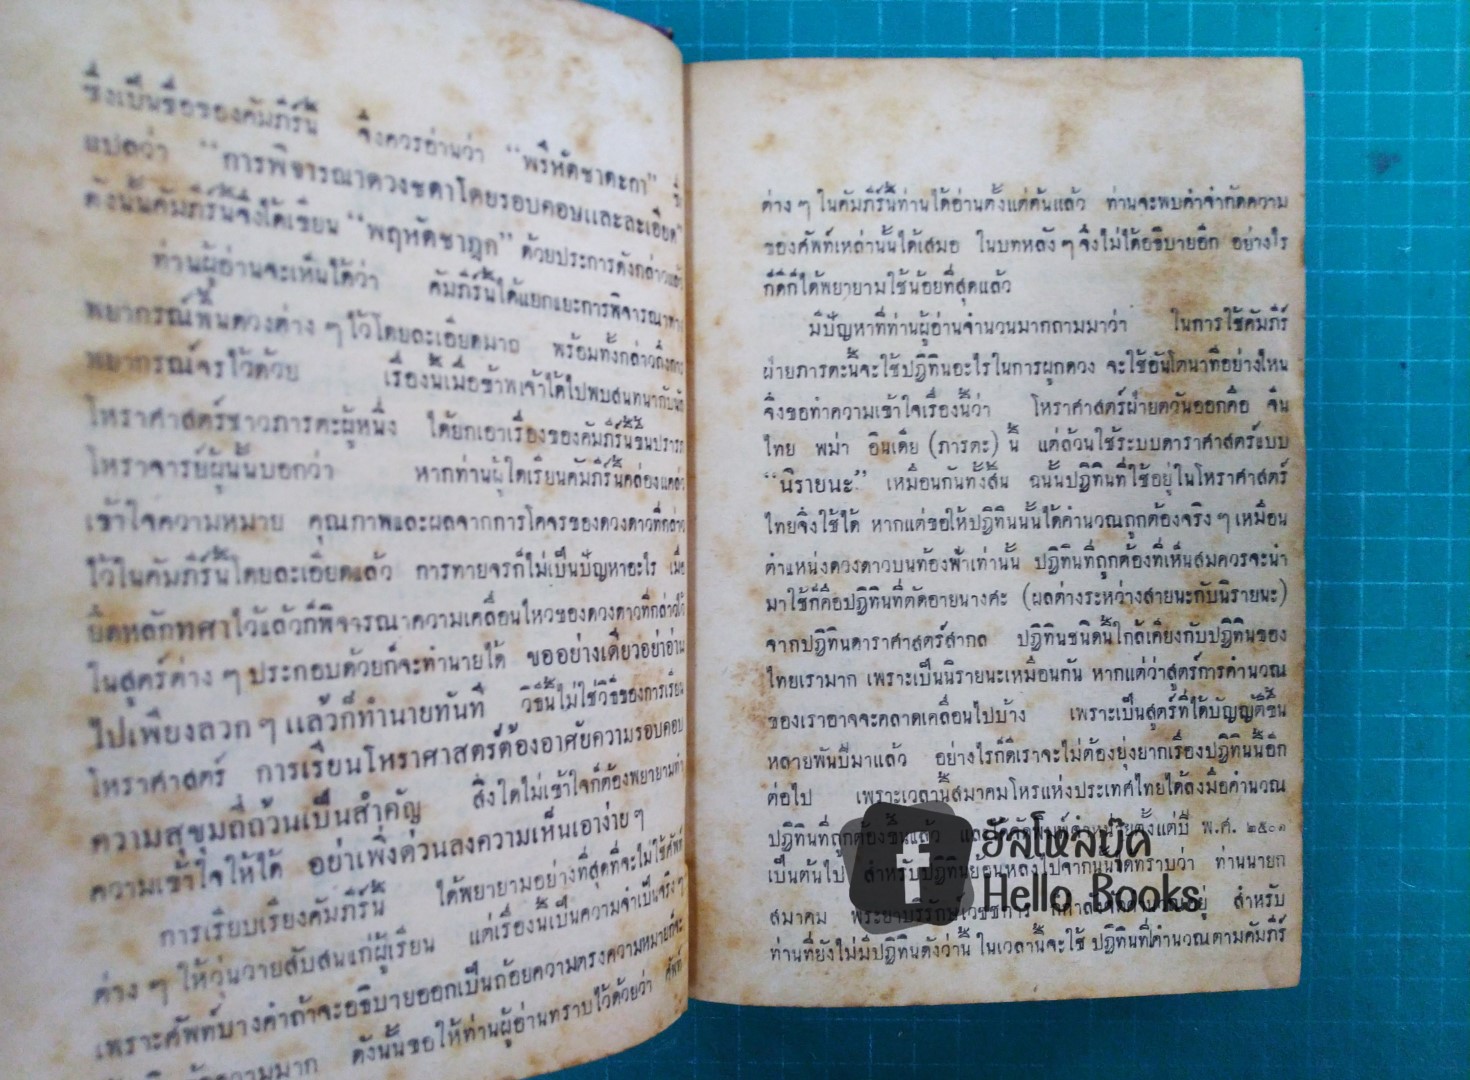 ซึ่งเป็นชื่อของคัมภีร์นี้ จึงควรอ่านว่า “พริหัดชาตะกา” ซึ่ง
แปลว่า “การพิจารณาดวงชตาโดยรอบคอบและละเอียด”
ดังนั้นคัมภีร์นี้จึงได้เขียน “พฤหัดชาฎก” ด้วยประการดังกล่าวแล้ว
ท่านผู้อ่านจะเห็นได้ว่า คัมภีร์นี้ได้แยกแยะการพิจารณา
พยากรณ์พื้นดวงต่าง ๆ ไว้โดยละเอียดมาก พร้อมทั้งกล่าวถึง
พยากรณ์จรไว้ด้วย เรื่องนี้เมื่อข้าพเจ้าได้ไปพบสนทนากับนัก
โหราศาสตร์ชาวภารตะผู้หนึ่ง ได้ยกเอาเรื่องของคัมภีร์นี้ขึ้นปรารภ
โหราจารย์ผู้นั้นบอกว่า หากท่านผู้ใดเรียนคัมภีร์นี้คล่องแคล่ว
เข้าใจความหมาย คุณภาพและผลจากการโคจรของดวงดาวที่กล่าว
ไว้ในคัมภีร์นี้โดยละเอียดแล้ว การทายจรก็ไม่เป็นปัญหาอะไร เมื่อ
ยึดหลักทศาไว้แล้วก็พิจารณาความเคลื่อนไหวของดวงดาวที่กล่าวไว้
ในสูตร์ต่าง ๆ ประกอบด้วยก็จะทำนายได้ ขออย่างเดียวอย่าอ่าน
ไปเพียงลวก ๆ แล้วก็ทำนายทันที วิธีนี้ไม่ใช่วิธีของการเรียน
โหราศาสตร์ การเรียนโหราศาสตร์ต้องอาศัยความรอบคอบ
ความสุขุมถี่ถ้วนเป็นสำคัญ สิ่งใดไม่เข้าใจก็ต้องพยายามทำ
ความเข้าใจให้ได้ อย่าเพิ่งด่วนลงความเห็นเอาง่าย ๆ
การเรียบเรียงคัมภีร์นี้ ได้พยายามอย่างที่สุดที่จะไม่ใช้ศัพท์
ต่าง ๆ ให้วุ่นวายสับสนแก่ผู้เรียน แต่เรื่องนี้เป็นความจำเป็นจริง ๆ
เพราะศัพท์บางคำถ้าจะอธิบายออกเป็นถ้อยความตรงความหมายก็จะ
ความมาก ดังนั้นขอให้ท่านผู้อ่านทราบไว้ด้วยว่า ศัพท์
ต่าง ๆ ในคัมภีร์นี้ท่านได้อ่านตั้งแต่ต้นแล้ว ท่านจะพบคำจำกัดความ
ของศัพท์เหล่านั้นได้เสมอ ในบทหลัง ๆ จึงไม่ได้อธิบายอีก อย่างไร
ก็ดีก็ได้พยายามใช้น้อยที่สุดแล้ว
มีปัญหาที่ท่านผู้อ่านจำนวนมากถามมาว่า ในการใช้คัมภีร์
ฝ่ายภารตะนี้จะใช้ปฏิทินอะไรในการผูกดวง จะใช้อันโตนาทีอย่างไหน
จึงขอทำความเข้าใจเรื่องนี้ว่า โหราศาสตร์ฝ่ายตวันออกคือ จีน
ไทย พม่า อินเดีย (ภารตะ) นี้ แต่ล้วนใช้ระบบดาราศาสตร์แบบ
“นิรายนะ” เหมือนกันทั้งสิ้น ฉนั้นปฏิทินที่ใช้อยู่ในโหราศาสตร์
ไทยจึงใช้ได้ หากแต่ขอให้ปฏิทินนั้นได้คำนวณถูกต้องจริง ๆ เหมือน
ตำแหน่งดวงดาวบนท้องฟ้าเท่านั้น ปฏิทินที่ถูกต้องที่เห็นสมควรจะนำ
มาใช้ก็คือปฏิทินที่ตัดอายนางศะ (ผลต่างระหว่างสายนะกับนิรายนะ)
จากปฏิทินดาราศาสตร์สากล ปฏิทินชนิดนี้ใกล้เคียงกับปฏิทินของ
ไทยเรามาก เพราะเป็นนิรายนะเหมือนกัน หากแต่ว่าสูตร์การคำนวณ
ของเราอาจจะคลาดเคลื่อนไปบ้าง เพราะเป็นสูตร์ที่ได้บัญญัติขึ้น
หลายพันปีมาแล้ว อย่างไรก็ดีเราจะไม่ต้องยุ่งยากเรื่องปฏิทินนี้อีก
ต่อไป เพราะเวลานี้สมาคมโหรแห่งประเทศไทยได้ลงมือคำนวณ
ปฏิทินที่ถูกต้องขึ้นแล้ว และได้จัดพิมพ์จำหน่ายตั้งแต่ปี พ.ศ. ๒๕๐๑
เป็นต้นไป สำหรับปฏิทินย้อนหลังไปจากนั้นได้ทราบว่า ท่านนายก
สมาคม พระยาบริรักษ์เวชชการ ก็กำลังคำนวณอยู่ สำหรับ
ท่านที่ยังไม่มีปฏิทินดังว่านี้ ในเวลานี้จะใช้ ปฏิทินที่คำนวณตามคัมภีร์
ฮัลโหลบุ๊ค
Hello Books